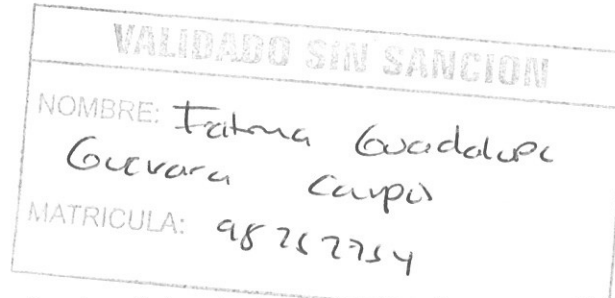 VALIDADO SIN SANCION
NOMBRE: Fatima Guadalupe
Guevara
MATRICULA: